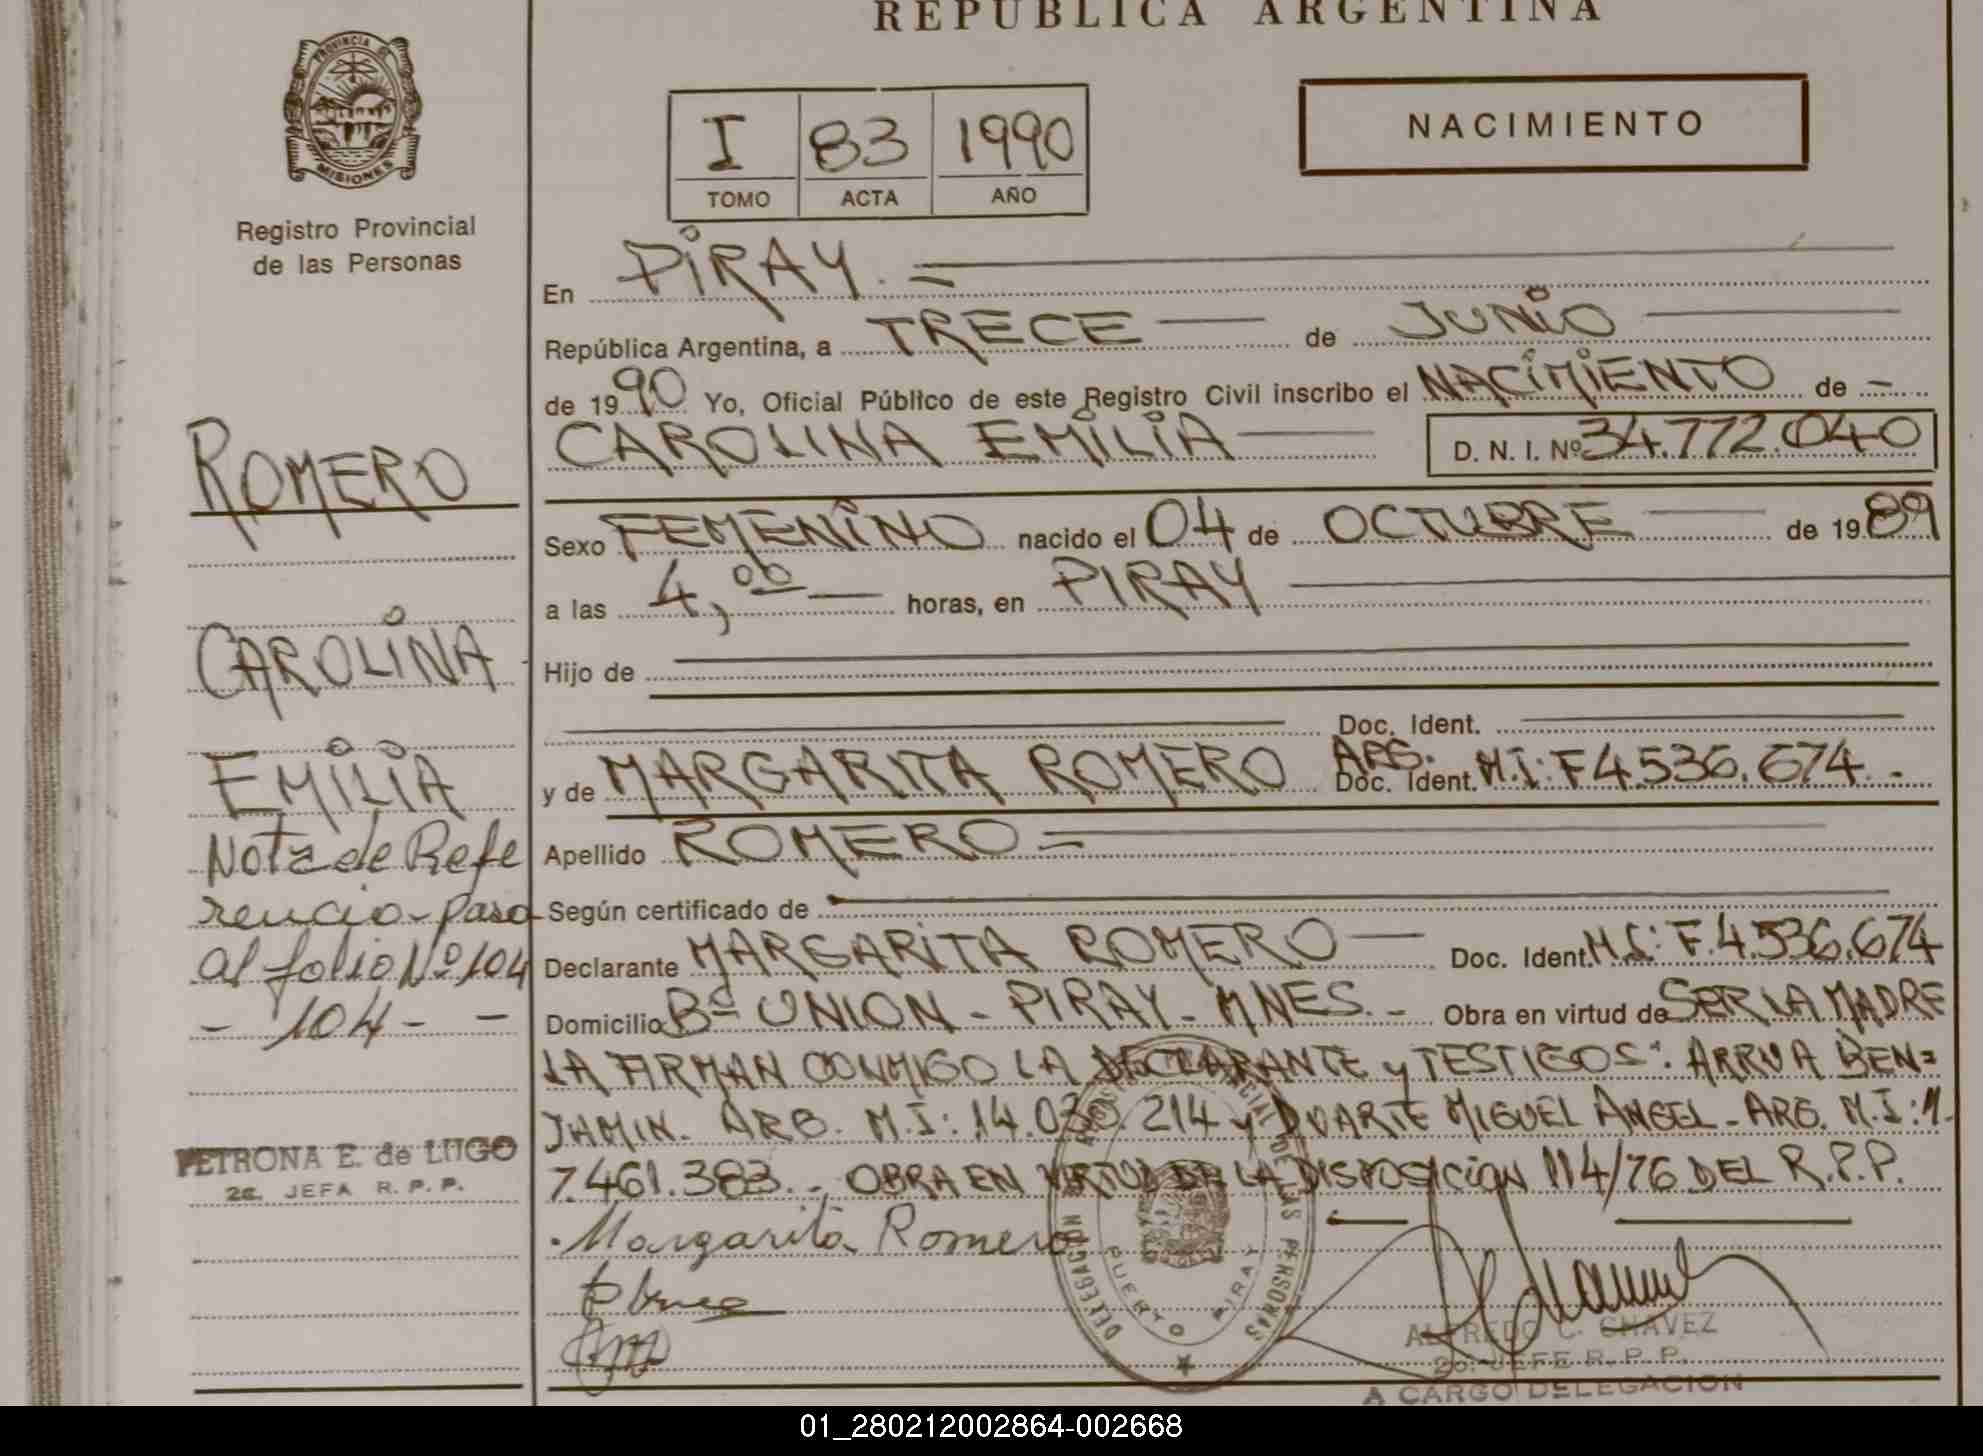 REPUBLICA ARGENTINA
PROVINCIA DE
MISIONES
Registro Provincial
de las Personas
I 83 1990
TOMO ACTA AÑO
NACIMIENTO
En PIRAY.=
República Argentina, a TRECE de JUNIO
de 1990 Yo, Oficial Público de este Registro Civil inscribo el NACIMIENTO de -
CAROLINA EMILIA D. N. I. Nº 34.772.040
ROMERO
Sexo FEMENINO nacido el 04 de OCTUBRE de 1989
a las 4,00 horas, en PIRAY
CAROLINA
Hijo de
Doc. Ident.
EMILIA
y de MARGARITA ROMERO ARG. Doc. Ident. M.I: F4.536.674.-
Nota de Refe
Apellido ROMERO =
rencia - paso
Según certificado de
al folio Nº 104
Declarante MARGARITA ROMERO Doc. Ident. M.I: F.4.536.674
- 104 - -
Domicilio Bº UNION - PIRAY - MNES. - Obra en virtud de SER LA MADRE
LA FIRMAN CONMIGO LA DECLARANTE y TESTIGOS: ARRUA BEN=
JAMIN. ARG. M.I: 14.030.214 y DUARTE MIGUEL ANGEL - ARG. M.I: M.
PETRONA E. de LUGO
2a. JEFA R. P. P.
7.461.383. - OBRA EN VIRTUD DE LA DISPOSICION 114/76 DEL R.P.P.
Margarita Romero
DELEGACION
DE LAS PERSONAS
PUERTO PIRAY
ALFREDO C. CHAVEZ
2o. JEFE R. P. P.
A CARGO DELEGACION
01_280212002864-002668